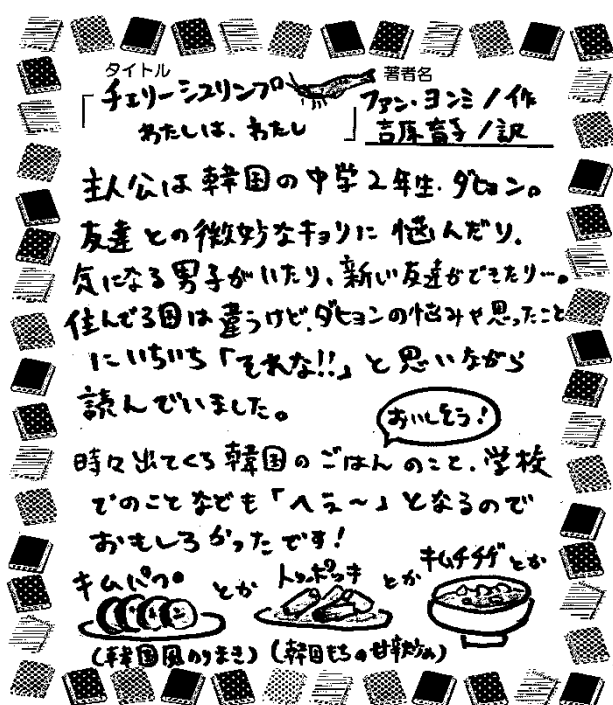 タイトル
「チェリーシュリンプ
わたしは、わたし」
著者名
ファン・ヨンミ/作
吉原育子/訳
主人公は韓国の中学2年生・ダヒョン。
友達との微妙なキョリに悩んだり、
気になる男子がいたり、新しい友達ができたり…。
住んでる国は違うけど、ダヒョンの悩みや思ったこと
にいちいち「それな!!」と思いながら
読んでいました。
おいしそう!
時々出てくる韓国のごはんのこと、学校
でのことなども「へえ〜」となるので
おもしろかったです!
キムパプ とか トッポッキ とか キムチチゲ とか
(韓国風のりまき) (韓国もちの甘辛炒め)